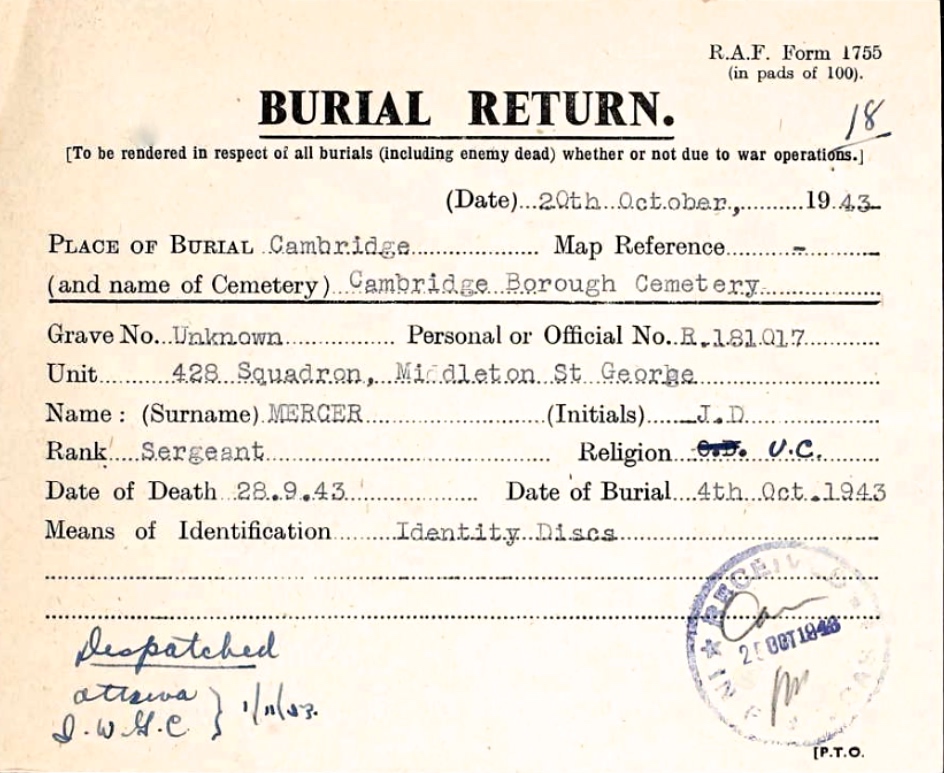 R.A.F. Form 1755
(in pads of 100).
BURIAL RETURN.
18
[To be rendered in respect of all burials (including enemy dead) whether or not due to war operations.]
(Date) 20th October, 1943
PLACE OF BURIAL Cambridge Map Reference -
(and name of Cemetery) Cambridge Borough Cemetery
Grave No. Unknown Personal or Official No. R.181017
Unit 428 Squadron, Middleton St George
Name: (Surname) MERCER (Initials) J.D
Rank Sergeant Religion C.D. U.C.
Date of Death 28.9.43 Date of Burial 4th Oct.1943
Means of Identification Identity Discs
RECEIVED
OCT 1943
IN
Despatched
Ottawa
I.W.G.C } 1/11/43.
[P.T.O.